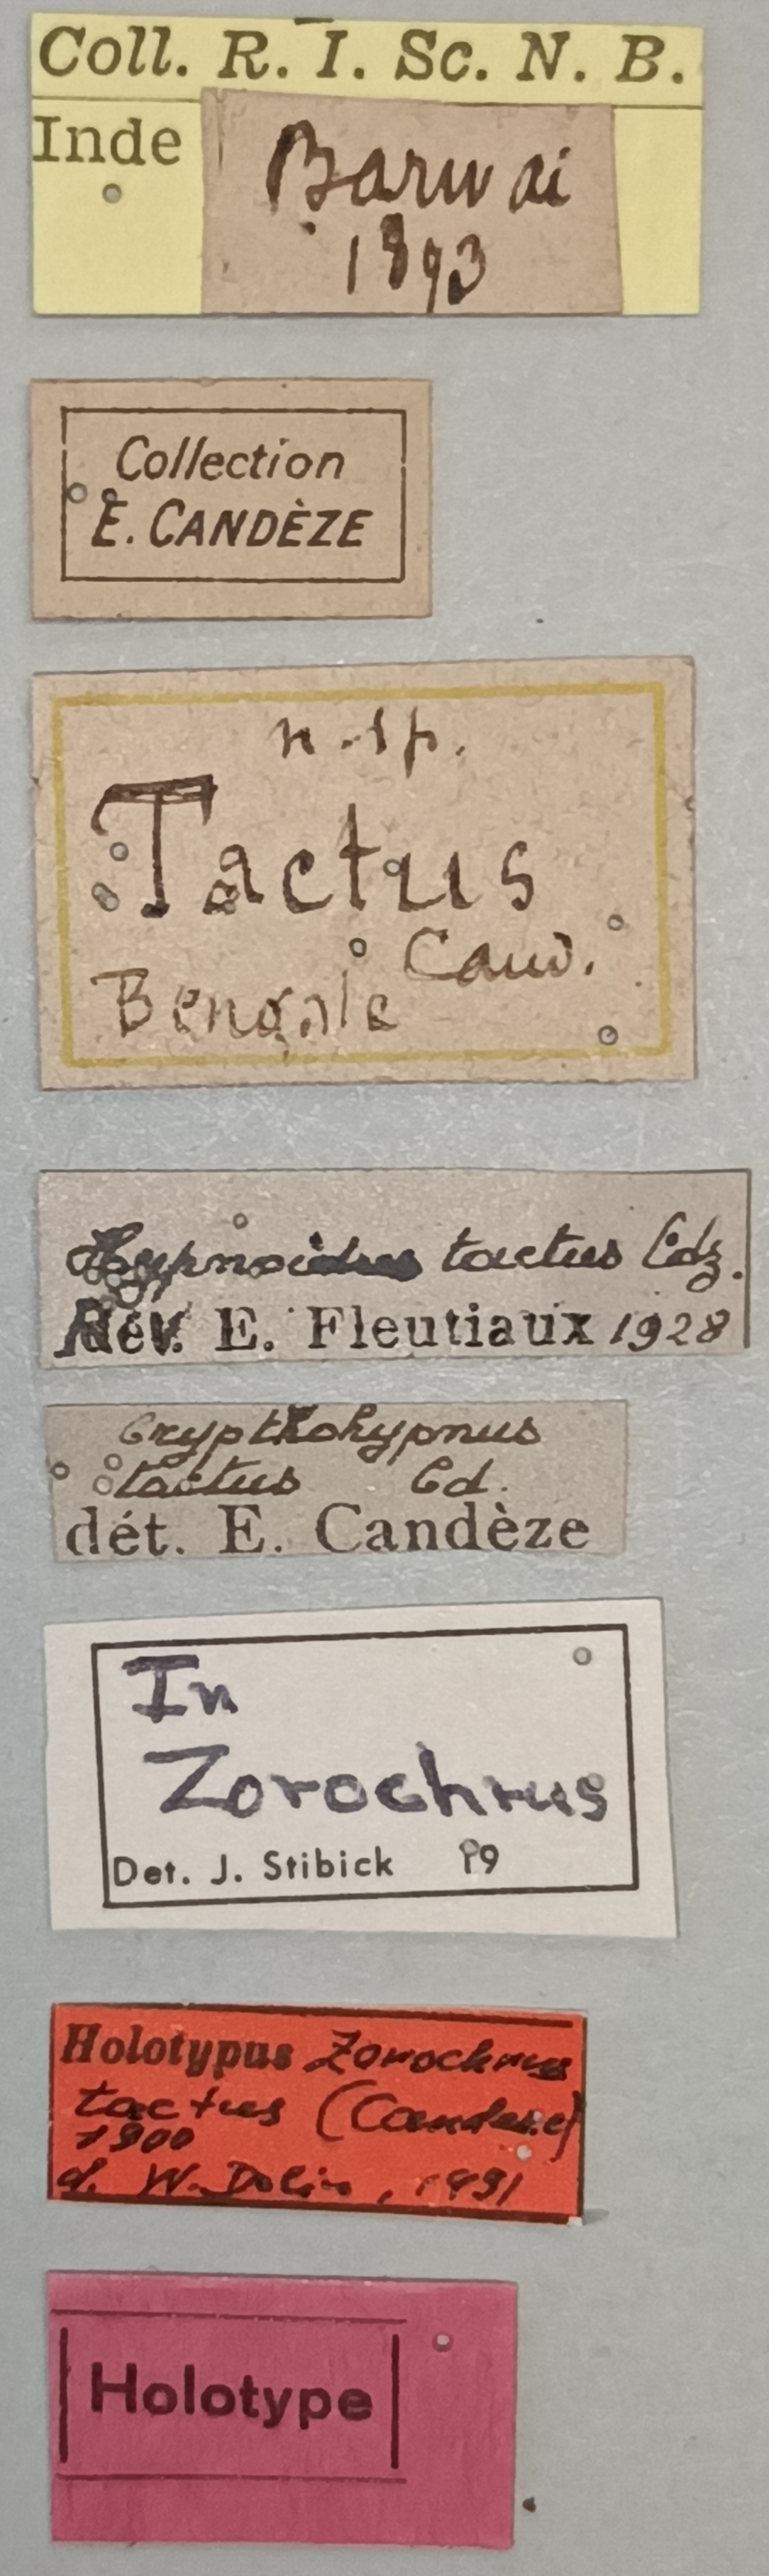 Coll. R. I. Sc. N. B.
Inde
Barwai
1893
Collection
E. CANDÈZE
n. sp.
Tactus
Cand.
Bengale
Hypnoidus tactus Cdz.
Rév. E. Fleutiaux 1928
Crypthohypnus
tactus Cd.
dét. E. Candèze
In
Zorochrus
Det. J. Stibick 19
Holotypus Zorochrus
tactus (Candeze)
1900
d. W. Dolin, 1991
Holotype